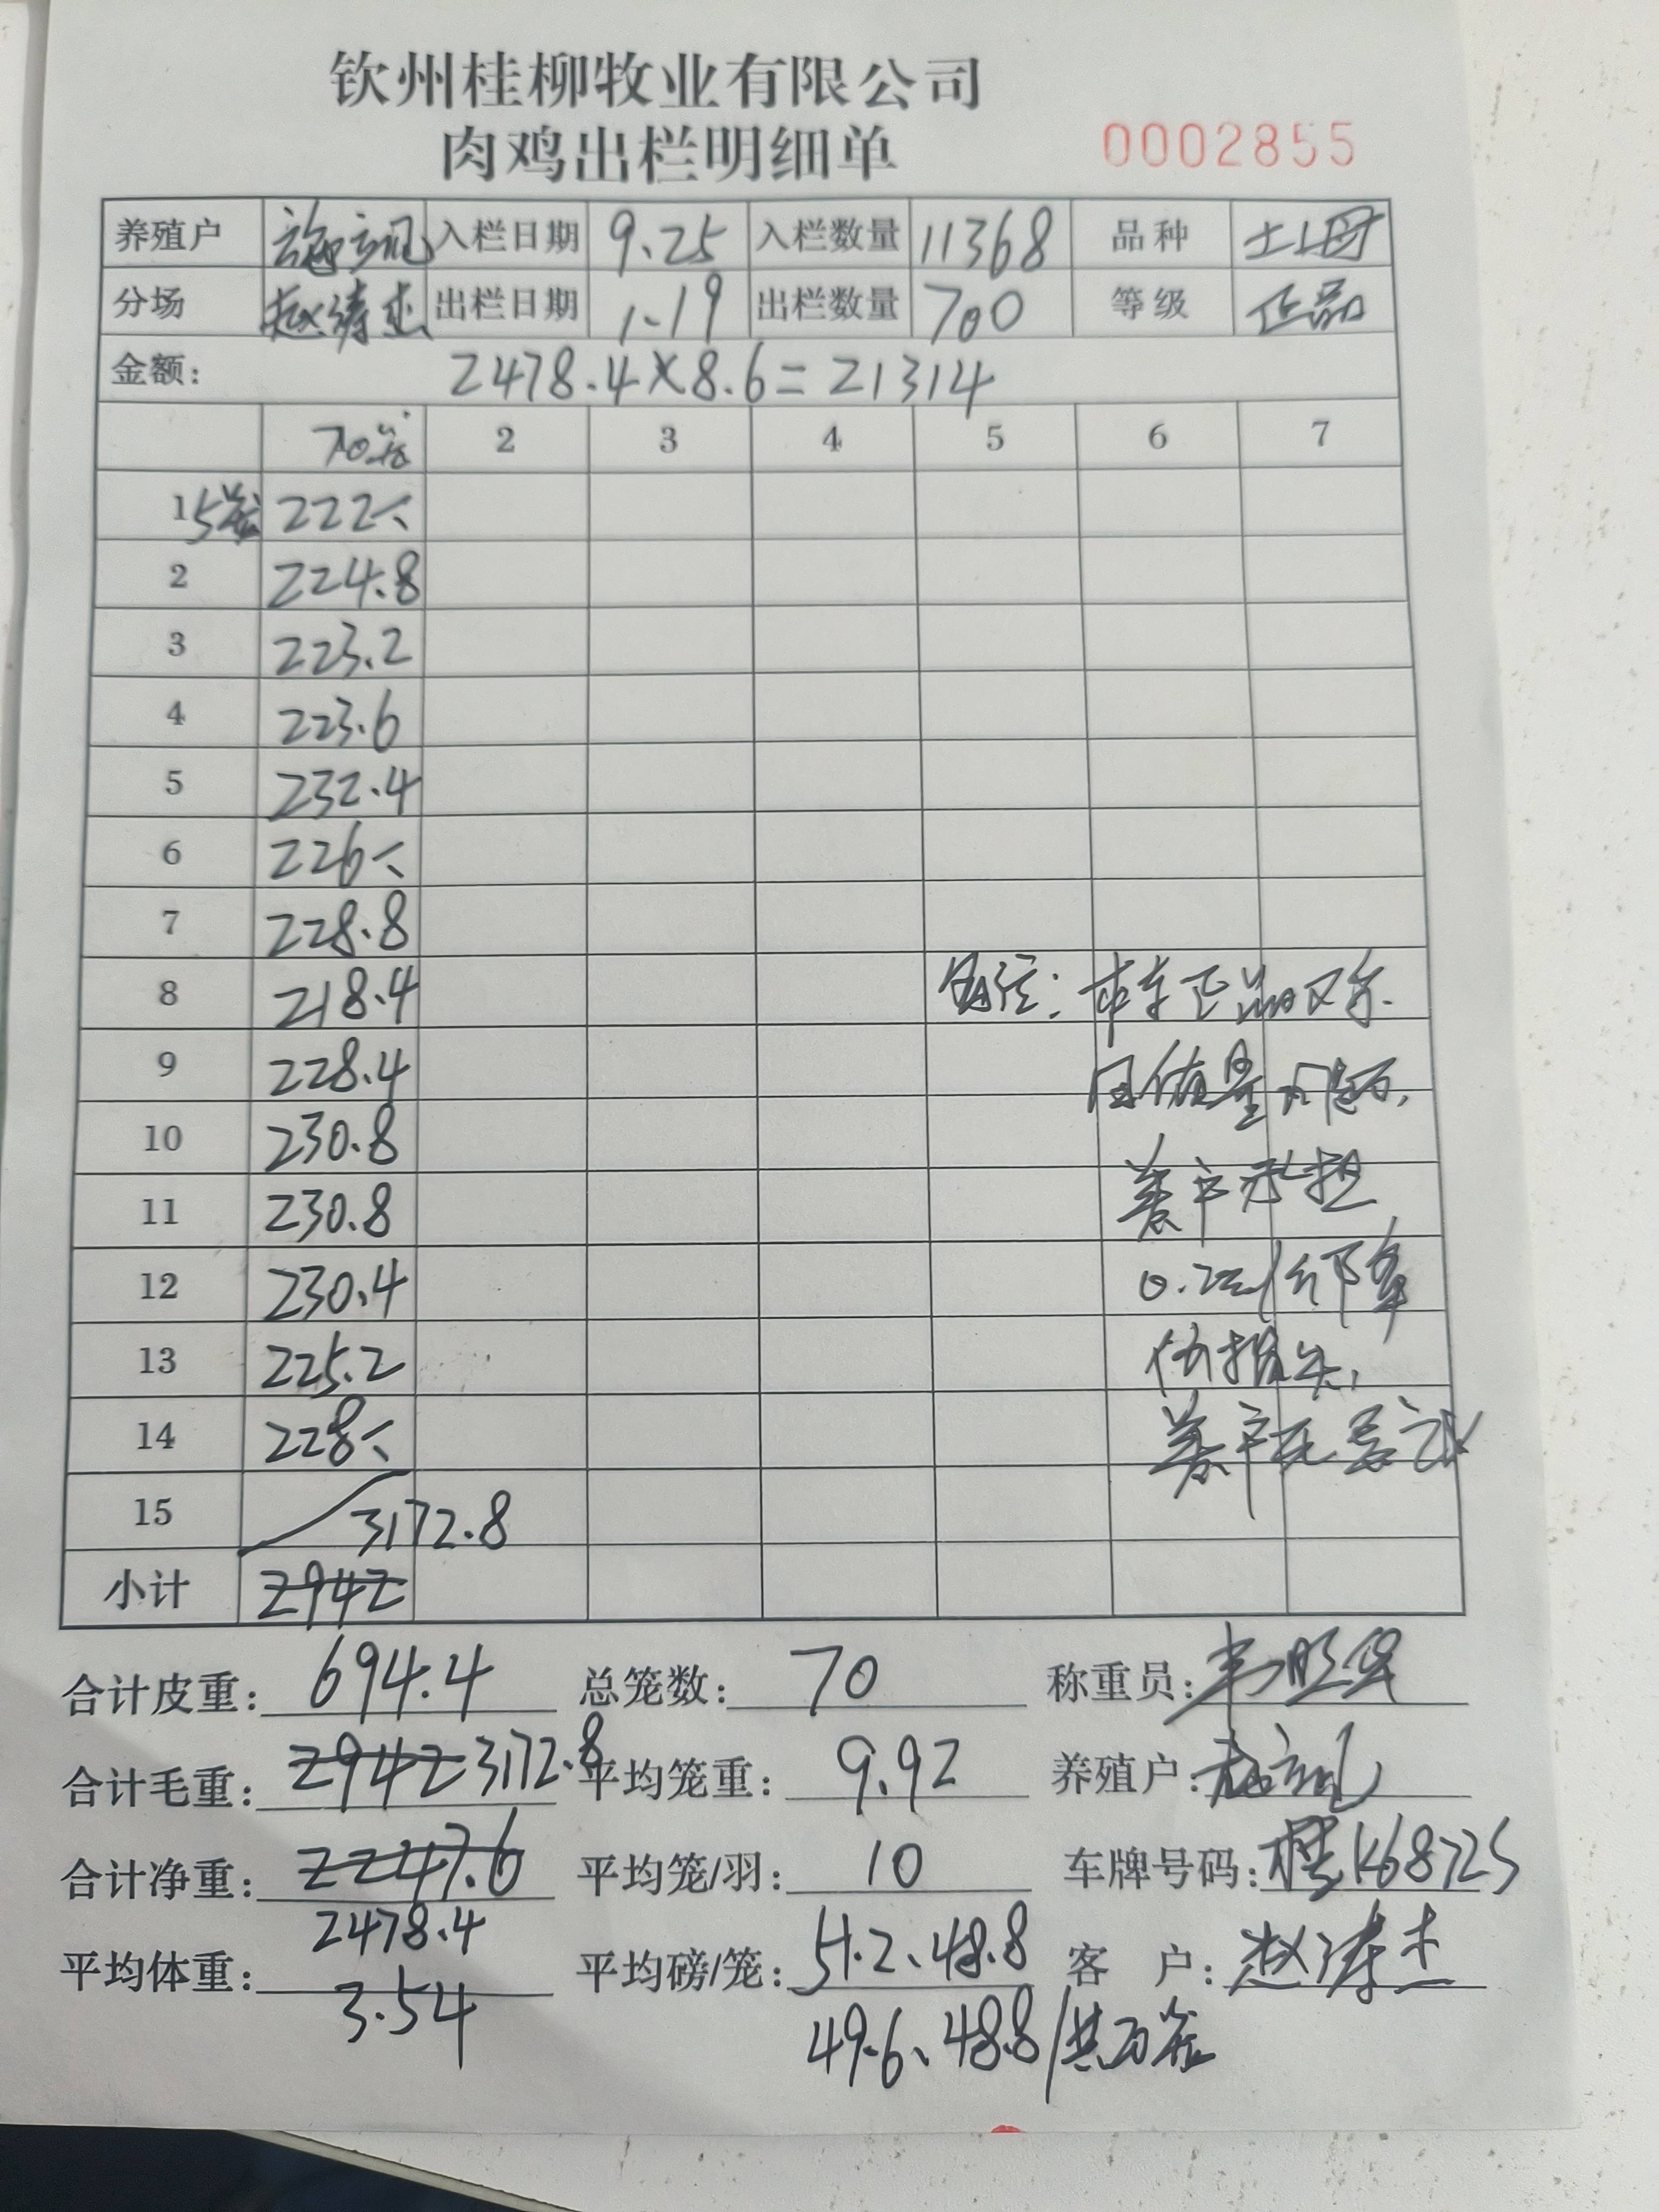 钦州桂柳牧业有限公司
肉鸡出栏明细单 0002855
养殖户 入栏日期 9.25 入栏数量 11368 品种 土2母
分场 赵涛杰 出栏日期 1.19 出栏数量 700 等级 正品
金额: 2478.4×8.6=21314
70笼 2 3 4 5 6 7
1 5笼 222
2 224.8
3 223.2
4 223.6
5 232.4
6 226
7 228.8
8 218.4 备注: 本车正品
9 228.4 因质量问题,
10 230.8
11 230.8 养户承担
12 230.4 0.2元/斤降
13 225.2 价损失,
14 228 养户无异议
15 3172.8
小计 2942
合计皮重: 694.4 总笼数: 70 称重员:
合计毛重: 2942 3172.8 平均笼重: 9.92 养殖户:
合计净重: 2247.6 平均笼/羽: 10 车牌号码: 桂K68725
2478.4
平均体重: 3.54 平均磅/笼: 51.2、48.8 客 户: 赵涛杰
49.6、48.8/共